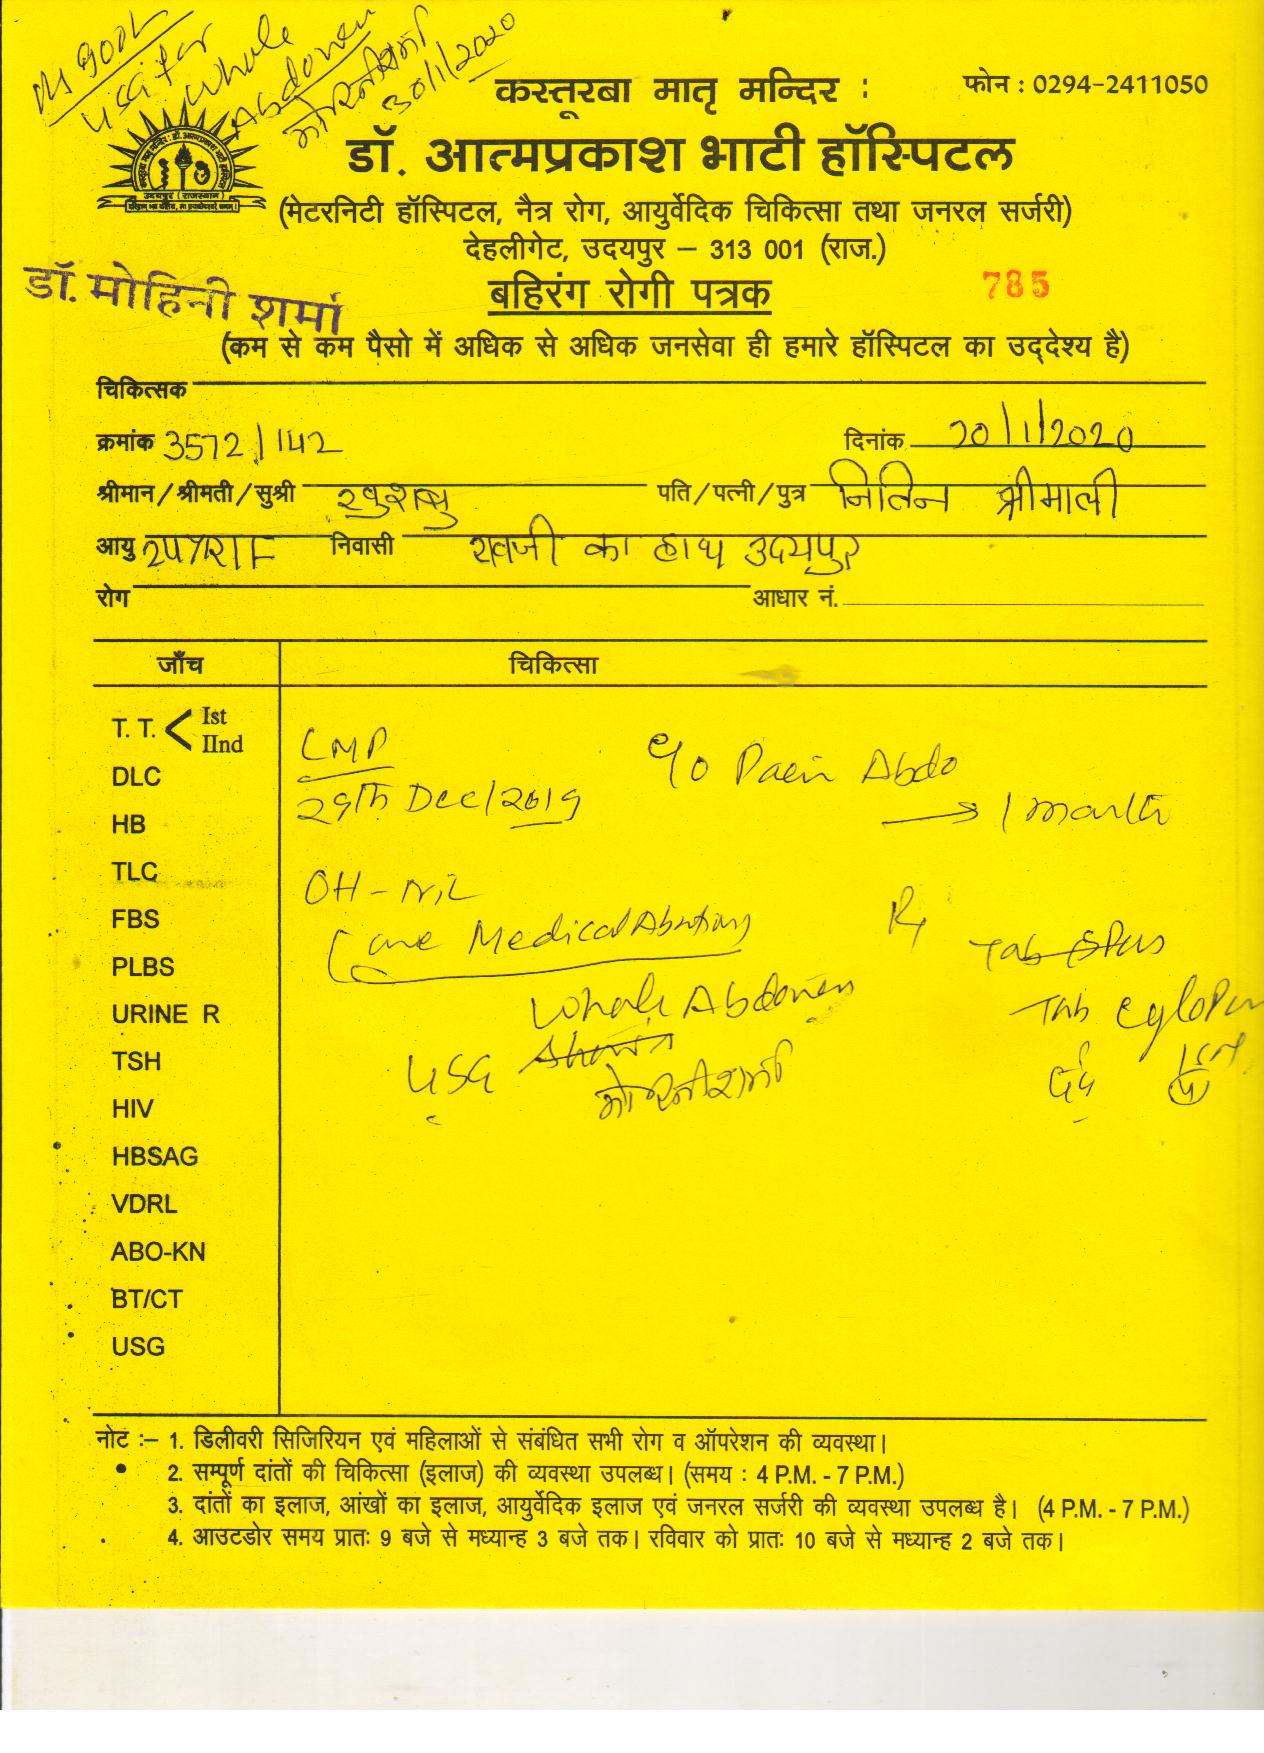 USG for
Whole
Abdomen
30/1/2020
कस्तूरबा मातृ मन्दिर :
फोन : 0294-2411050
डॉ. आत्मप्रकाश भाटी हॉस्पिटल
उदयपुर (राजस्थान)
(मेटरनिटी हॉस्पिटल, नैत्र रोग, आयुर्वेदिक चिकित्सा तथा जनरल सर्जरी)
देहलीगेट, उदयपुर – 313 001 (राज.)
डॉ. मोहिनी शर्मा
बहिरंग रोगी पत्रक
785
(कम से कम पैसो में अधिक से अधिक जनसेवा ही हमारे हॉस्पिटल का उद्देश्य है)
चिकित्सक
क्रमांक 3572/142 दिनांक 20/1/2020
श्रीमान/श्रीमती/सुश्री खुशबु पति/पत्नी/पुत्र नितिन श्रीमाली
आयु निवासी रावजी का हाथा उदयपुर
रोग आधार नं.
जाँच चिकित्सा
T. T. < Ist
IInd
DLC
HB
TLC
FBS
PLBS
URINE R
TSH
HIV
HBSAG
VDRL
ABO-KN
BT/CT
USG
LMP
29th Dec/2019
C/o Pain Abdo
→ 1 month
OH - Nil
One Medical Abortion
Rx
Whole Abdomen
USG
Tab
Tab
दर्द
नोट :– 1. डिलीवरी सिजिरियन एवं महिलाओं से संबंधित सभी रोग व ऑपरेशन की व्यवस्था।
2. सम्पूर्ण दांतों की चिकित्सा (इलाज) की व्यवस्था उपलब्ध। (समय : 4 P.M. - 7 P.M.)
3. दांतों का इलाज, आंखों का इलाज, आयुर्वेदिक इलाज एवं जनरल सर्जरी की व्यवस्था उपलब्ध है। (4 P.M. - 7 P.M.)
4. आउटडोर समय प्रातः 9 बजे से मध्यान्ह 3 बजे तक। रविवार को प्रातः 10 बजे से मध्यान्ह 2 बजे तक।